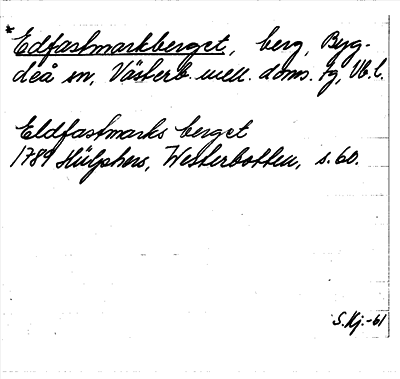 *Edfastmarkberget, berg, Byg-
deå sn, Västerb. mell. doms. tg, Vb. l.
Eldfastmarks berget
1789 Hülphers, Westerbotten, s. 60.
S. Kj. -61